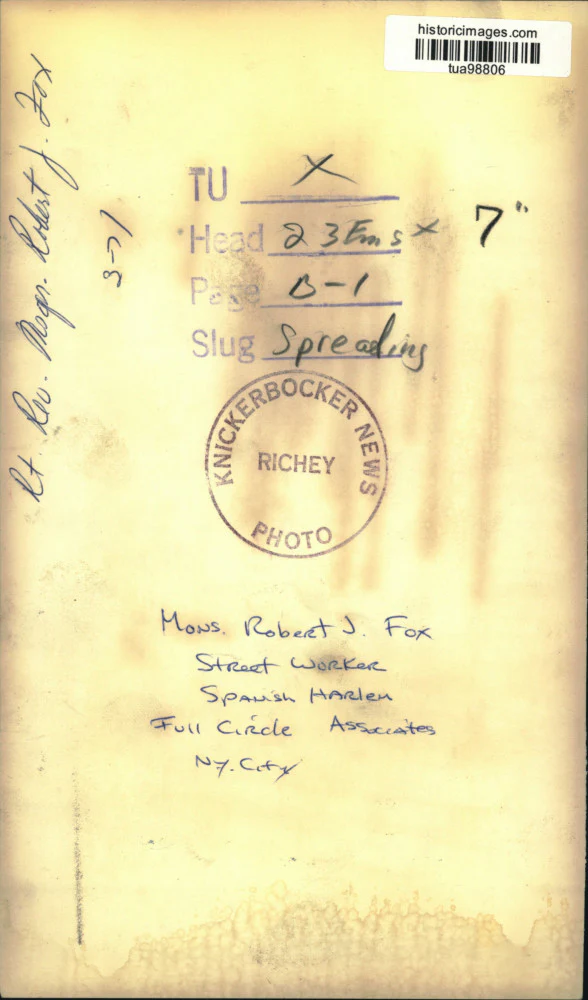 historicimages.com
tua98806
Rt. Rev. Msgr. Robert J. Fox
3-71
TU X
Head 23 Ems x 7"
Page B-1
Slug Spreading
KNICKERBOCKER NEWS
RICHEY
PHOTO
Mons. Robert J. Fox
Street Worker
Spanish Harlem
Full Circle Associates
N.Y. City